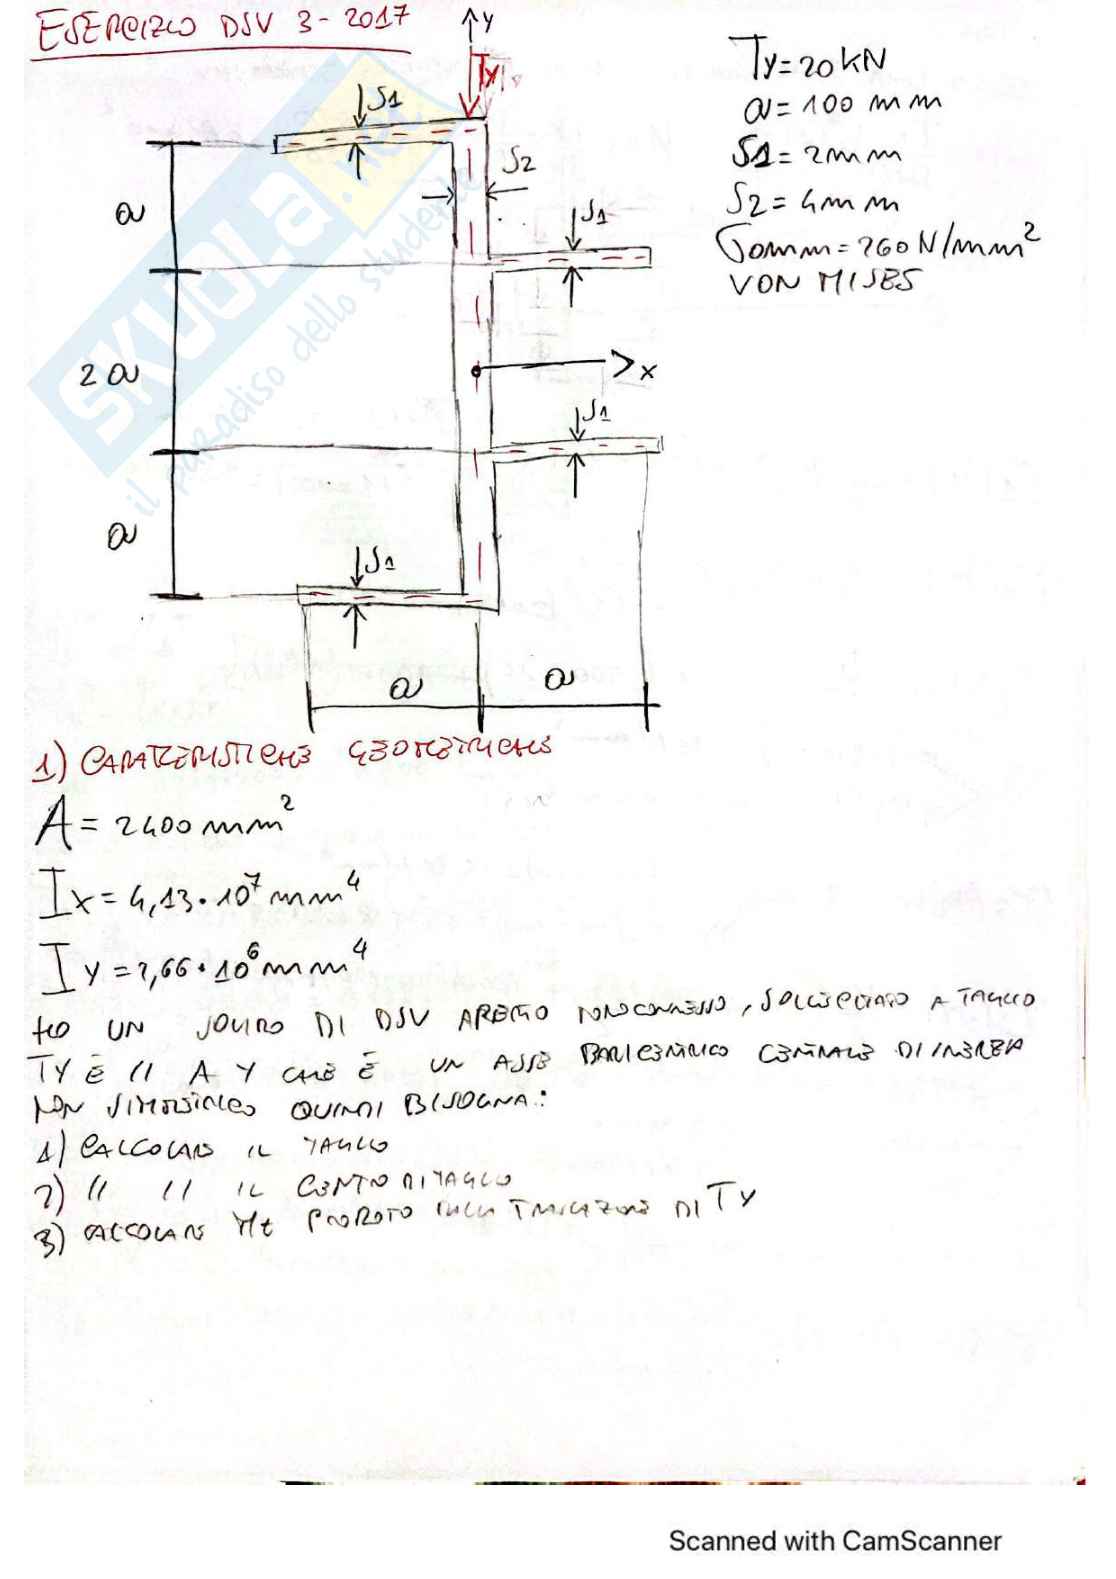 ESERCIZIO DSV 3-2017
y
Ty
S1
S2
S1
a
2a
a
x
S1
S1
a
a
Ty=20KN
a=100 mm
S1=2mm
S2=4mm
σamm=260N/mm²
VON MISES
SKUOLA.net
il paradiso dello studente
1) CARATTERISTICHE GEOMETRICHE
A=2400mm²
Ix=4,13·10⁷mm⁴
Iy=2,66·10⁶mm⁴
HO UN SOLIDO DI DSV APERTO MONOCONNESSO, SOLLECITATO A TAGLIO
TY È // A Y CHE È UN ASSE BARICENTRICO CENTRALE DI INERZIA
NON SIMMETRICO QUINDI BISOGNA:
1) CALCOLARE IL TAGLIO
2) // // IL CENTRO DI TAGLIO
3) CALCOLARE Mt PRODOTTO DALLA TRASLAZIONE DI TY
Scanned with CamScanner